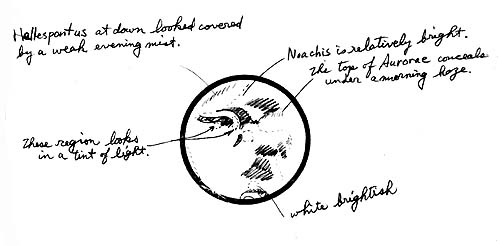 Hellespontus at down looked covered
by a weak evening mist.
Noachis is relatively bright.
The top of Aurorae conceals
under a morning haze.
These region looks
in a tint of light.
white brightish